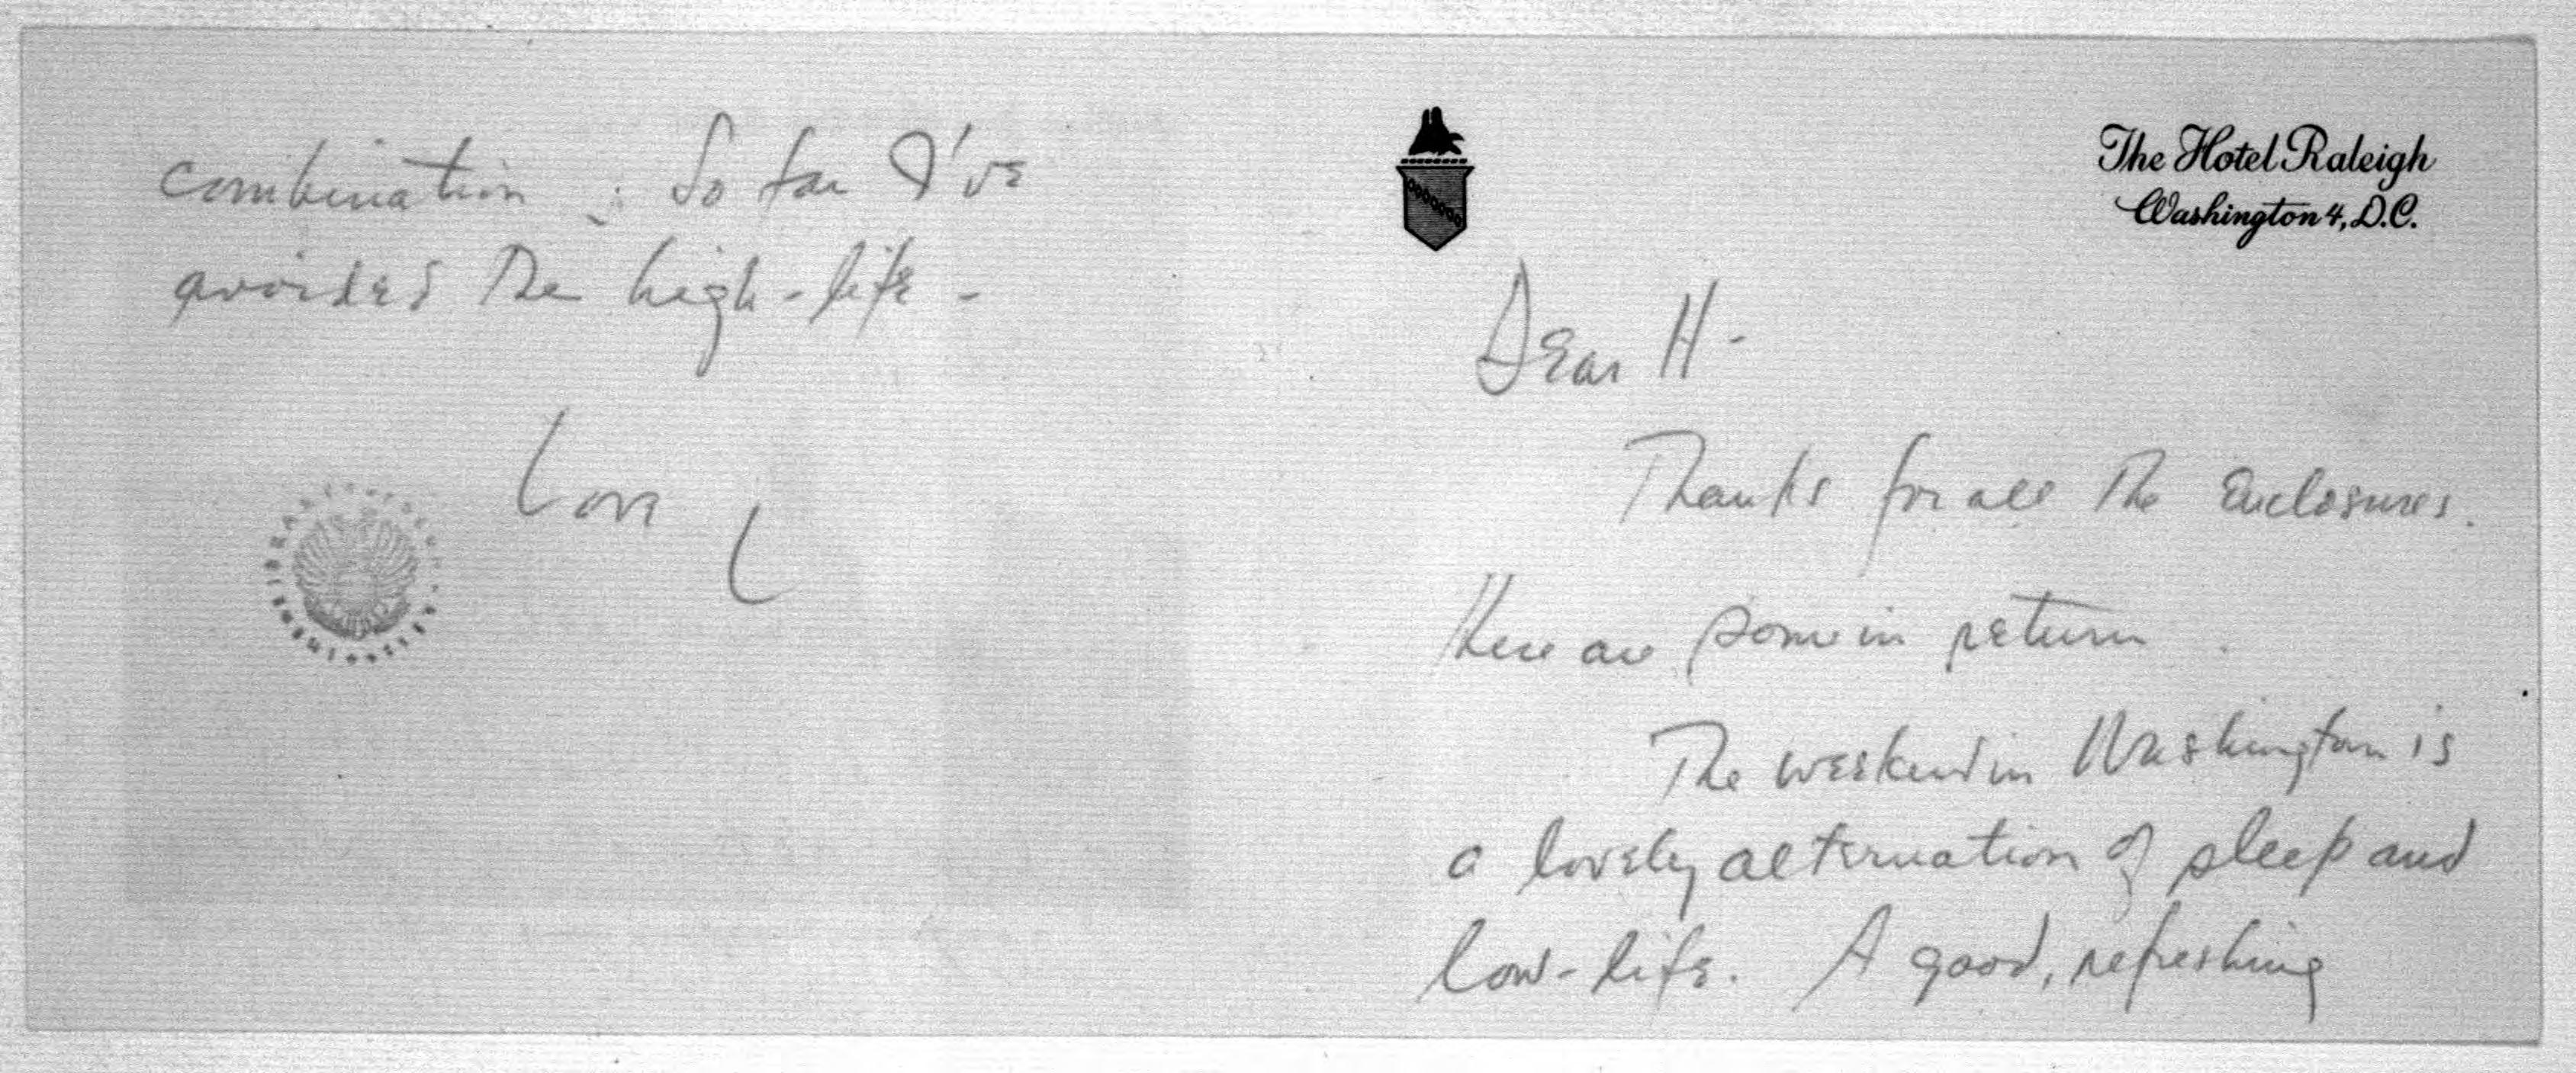 The Hotel Raleigh
Washington 4, D.C.
Dear H -
Thanks for all the enclosures.
Here are some in return.
The weekend in Washington is
a lovely alternation of sleep and
low-life. A good, refreshing
combination; So far I've
avoided the high-life -
Love
L